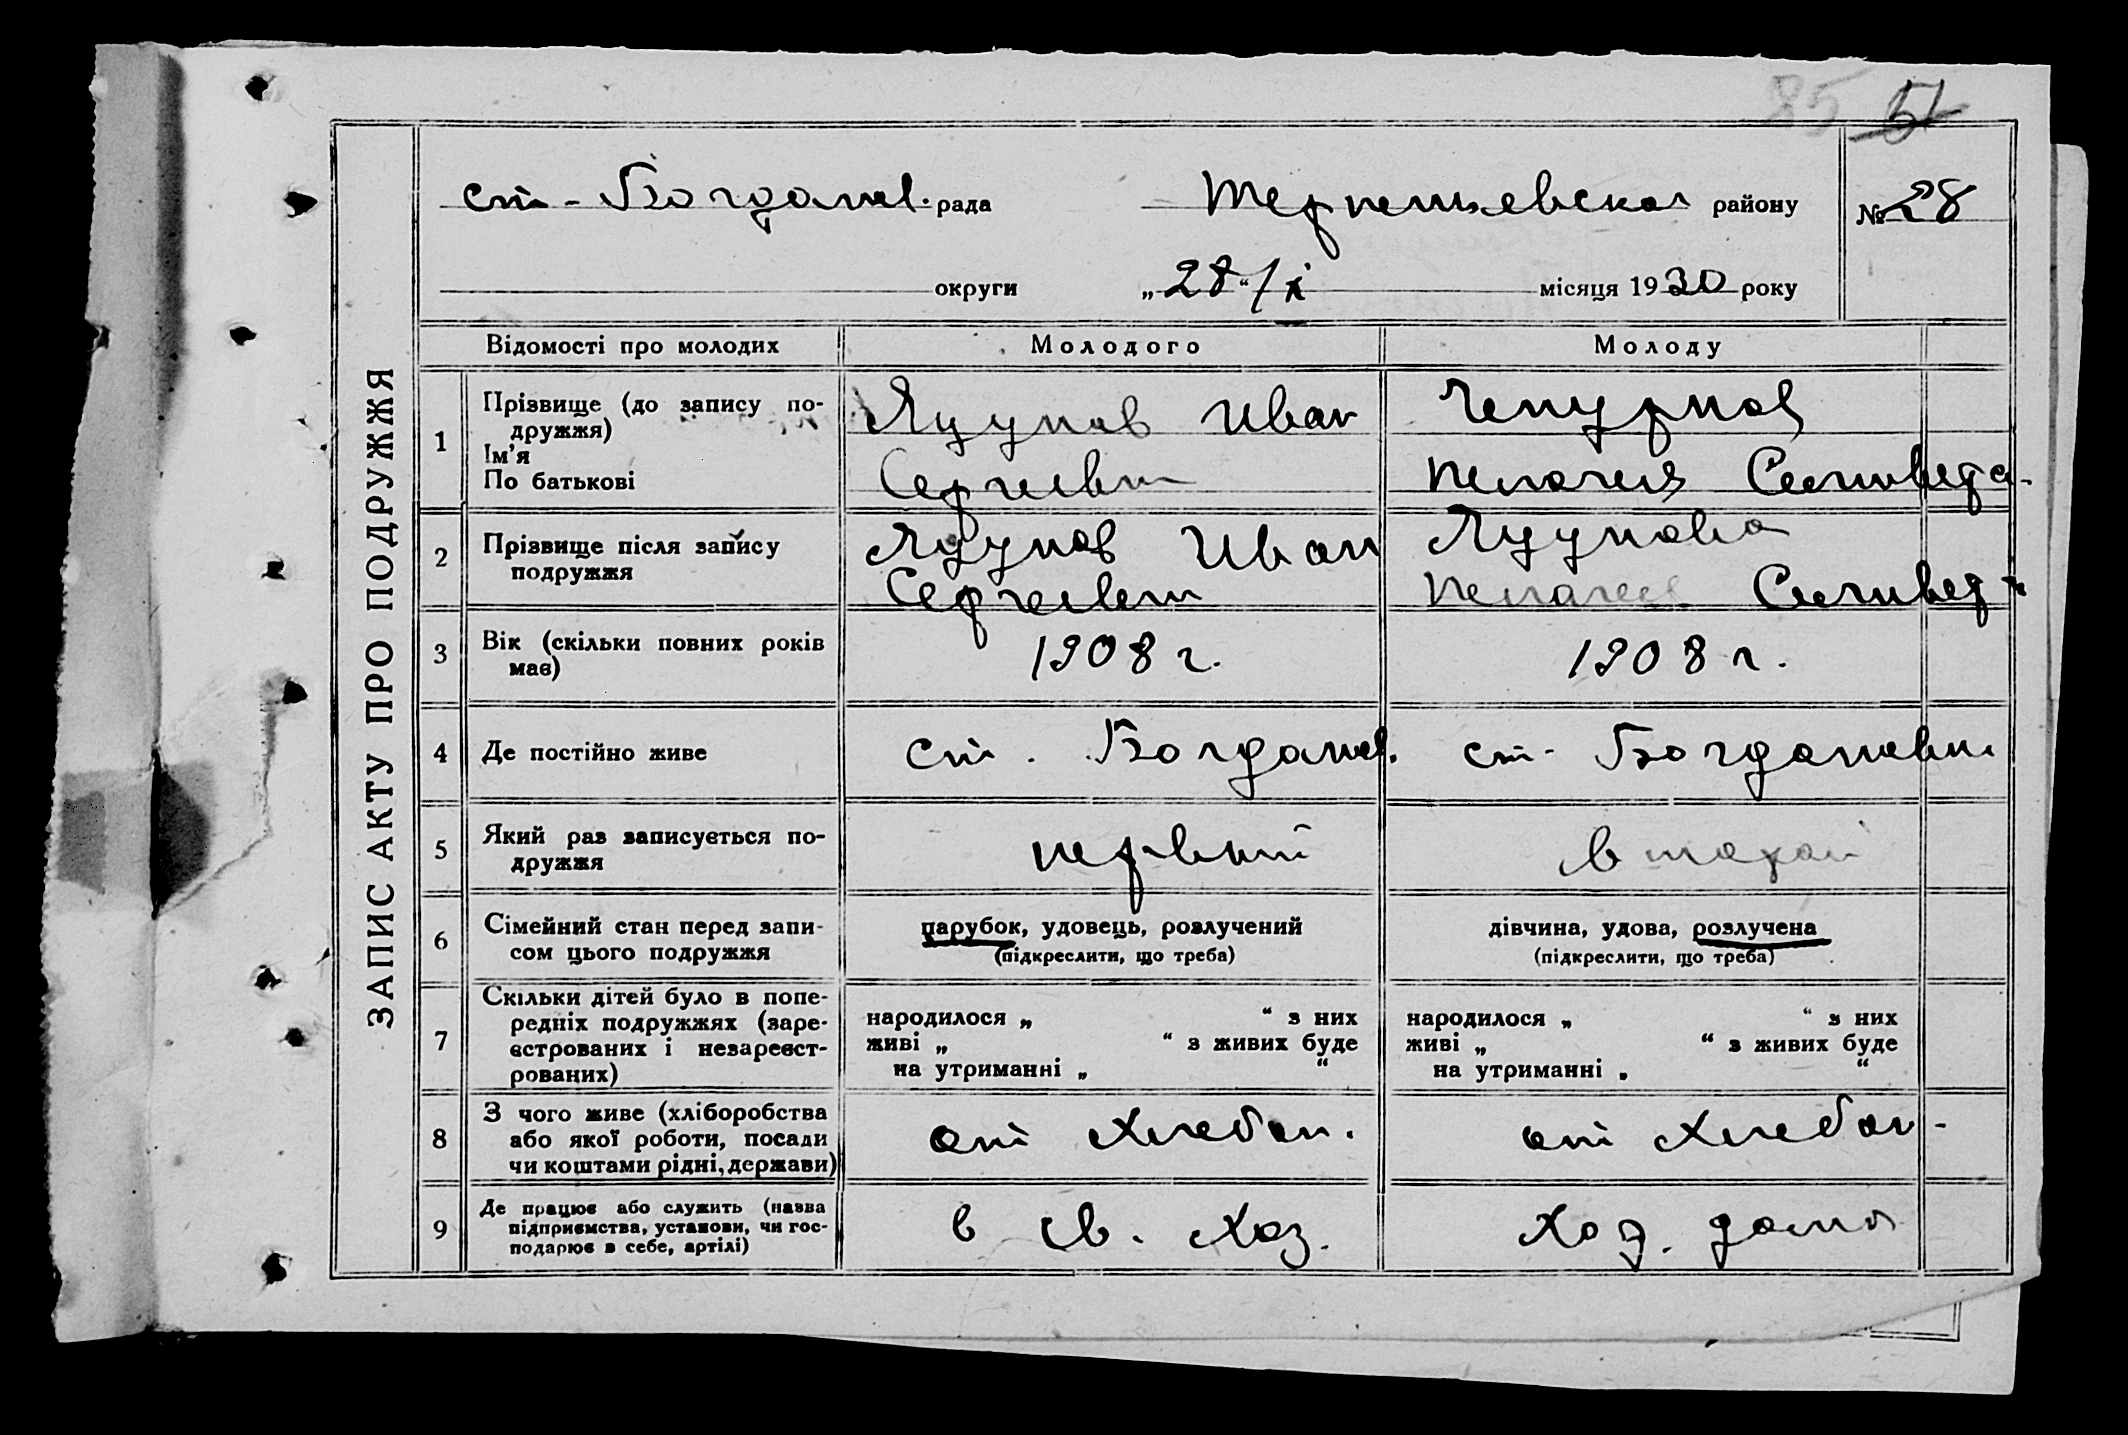 85 51
ст-Богданов. рада Терпеньевская району № 28
округи „28“/X місяця 1930 року
ЗАПИС АКТУ ПРО ПОДРУЖЖЯ
Відомості про молодих Молодого Молоду
1 Прізвище (до запису по-
дружжя)
Ім’я
По батькові
Яцунов Иван
Сергеевич
Чепурнов
Пелагея Селиверс-
2 Прізвище після запису
подружжя
Яцунов Иван
Сергеевич
Яцунова
Пелагея
3 Вік (скільки повних років
має)
1908 г. 1908 г.
4 Де постійно живе ст. Богданов. ст- Богдановки
5 Який раз записується по-
дружжя
первый второй
6 Сімейний стан перед запи-
сом цього подружжя
парубок, удовець, розлучений
(підкреслити, що треба)
дівчина, удова, розлучена
(підкреслити, що треба)
7 Скільки дітей було в попе-
редніх подружжях (заре-
єстрованих і незареєст-
рованих)
народилося „ “ з них
живі „ “ з живих буде
на утриманні „ “
народилося „ “ з них
живі „ “ з живих буде
на утриманні „ “
8 З чого живе (хліборобства
або якої роботи, посади
чи коштами рідні, держави)
от хлебоп. от хлебоп-
9 Де працює або служить (назва
підприємства, установи, чи гос-
подарює в себе, артілі)
в св. хоз. хоз. дома